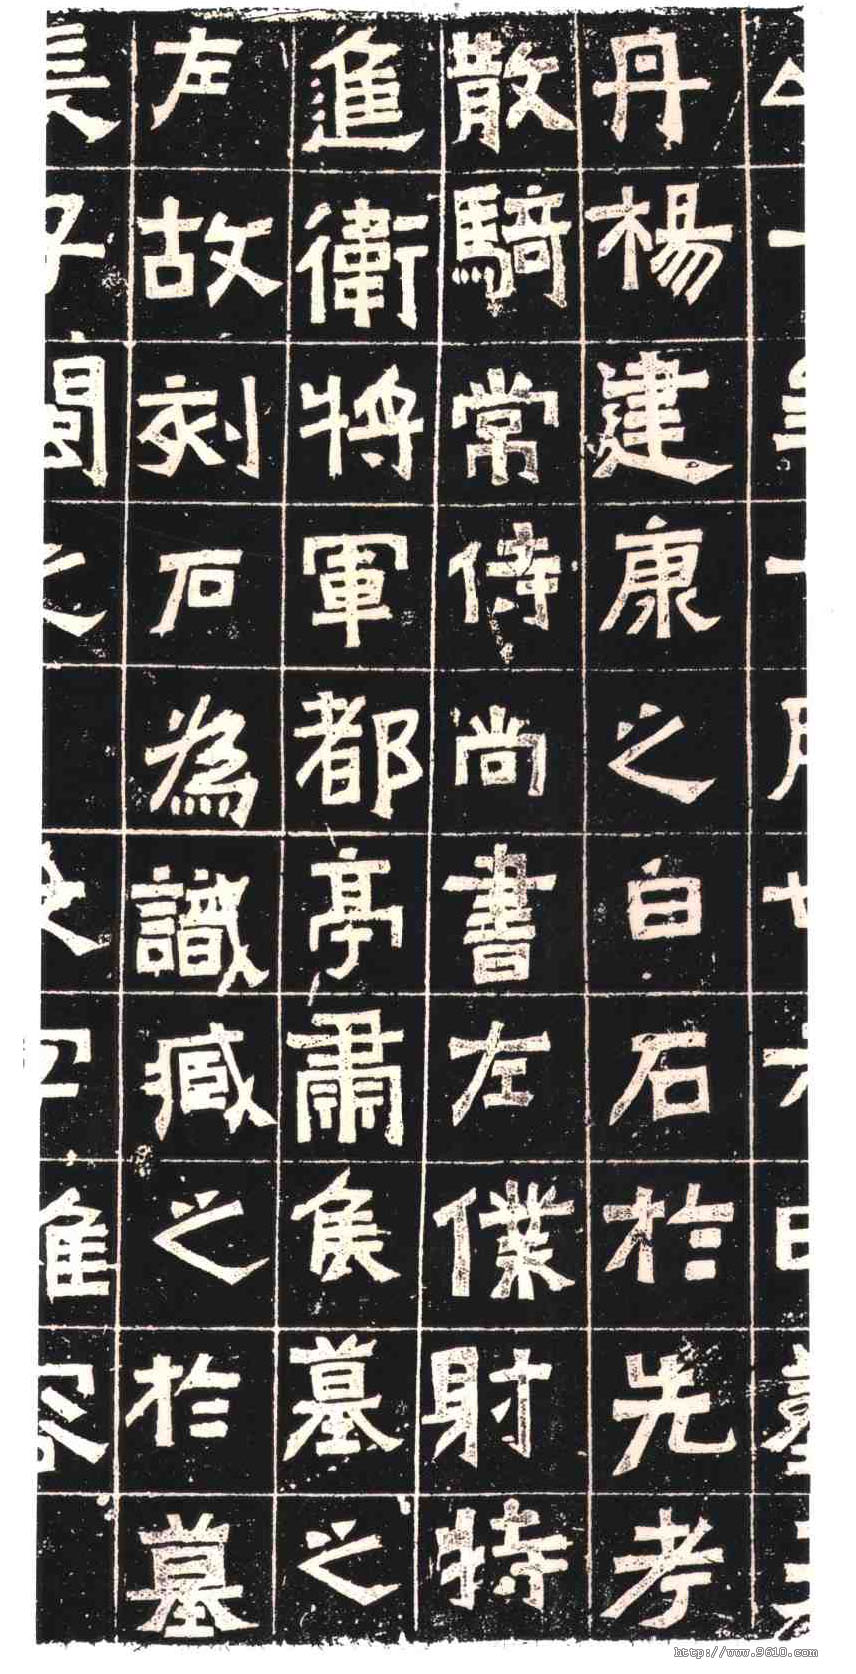 丹楊建康之白石於先考
散騎常侍尚書左僕射特
進衛將軍都亭肅侯墓之
左故刻石為識臧之於墓
長子閩之
http://www.9610.com